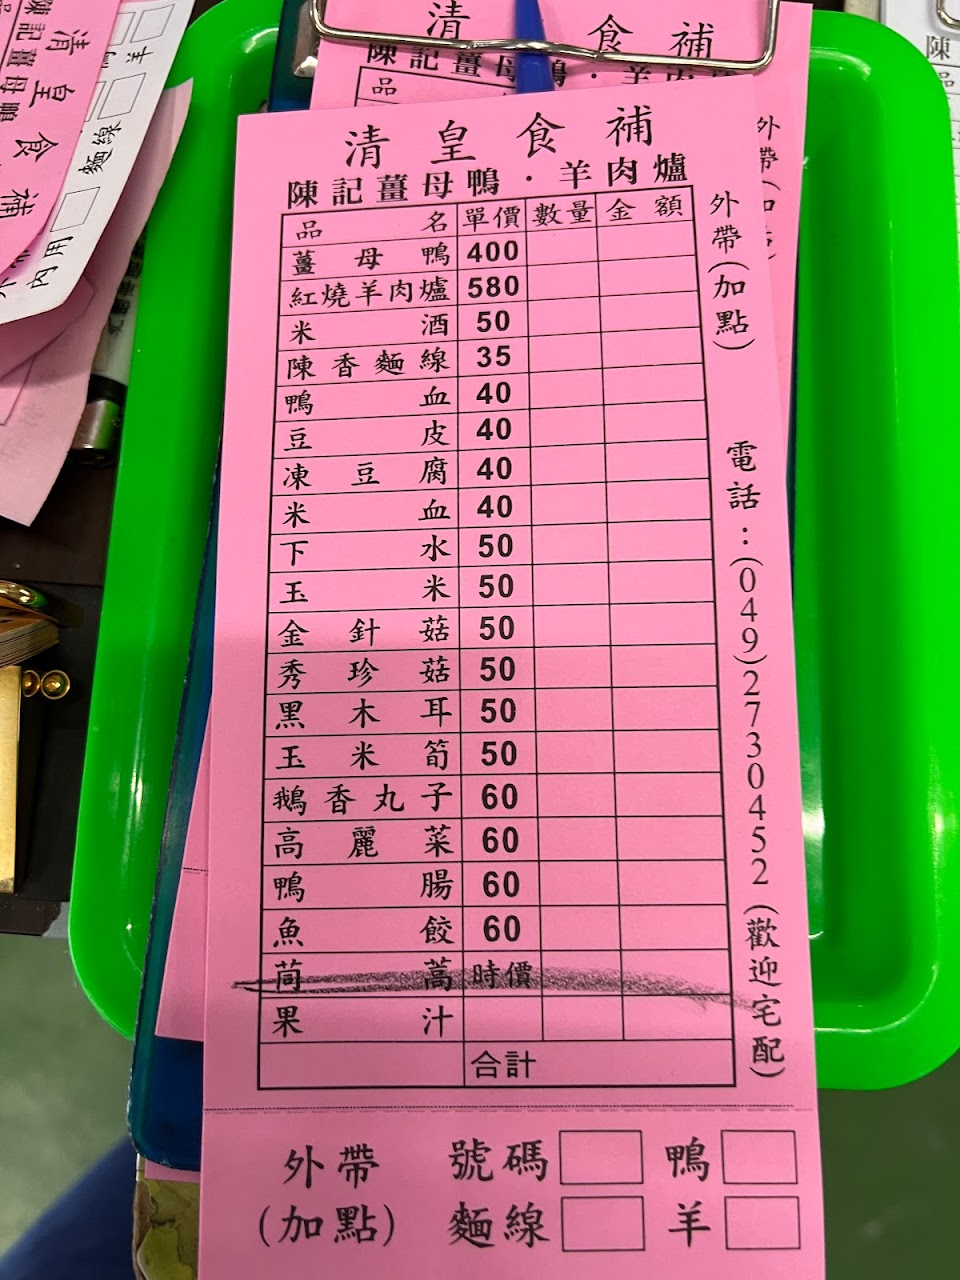 清 食 補
陳記薑母鴨·羊肉爐
品
外帶(加
清皇食補
陳記薑母鴨
麵線
內用
羊
陳
清皇食補
陳記薑母鴨·羊肉爐
品名 單價 數量 金額
薑母鴨 400
紅燒羊肉爐 580
米酒 50
陳香麵線 35
鴨血 40
豆皮 40
凍豆腐 40
米血 40
下水 50
玉米 50
金針菇 50
秀珍菇 50
黑木耳 50
玉米筍 50
鵝香丸子 60
高麗菜 60
鴨腸 60
魚餃 60
茼蒿 時價
果汁
合計
外帶(加點) 電話:(049)2730452(歡迎宅配)
外帶 號碼 鴨
(加點) 麵線 羊